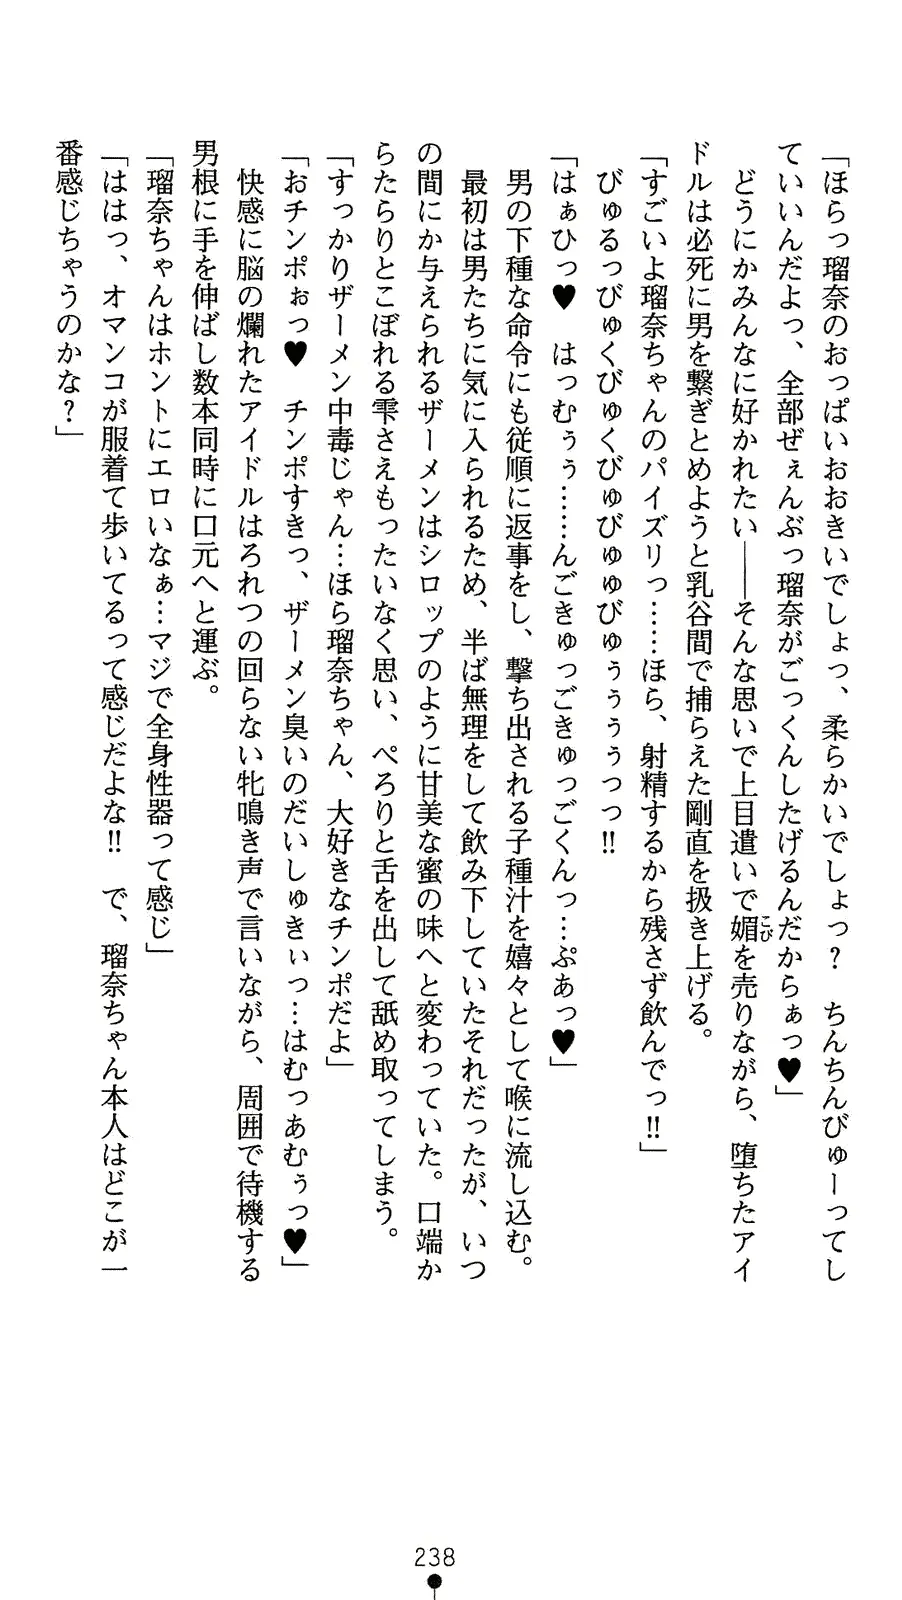 「ほらっ瑠奈のおっぱいおおきいでしょっ、柔らかいでしょっ？　ちんちんびゅーってし
ていいんだよっ、全部ぜぇんぶっ瑠奈がごっくんしたげるんだからぁっ♥」
　どうにかみんなに好かれたい――そんな思いで上目遣いで媚こびを売りながら、堕ちたアイ
ドルは必死に男を繋ぎとめようと乳谷間で捕らえた剛直を扱き上げる。
「すごいよ瑠奈ちゃんのパイズリっ……ほら、射精するから残さず飲んでっ!!」
　びゅるっびゅくびゅくびゅびゅゅびゅぅぅぅっっ!!
「はぁひっ♥　はっむぅぅ……んごきゅっごきゅっごくんっ…ぷあっ♥」
　男の下種な命令にも従順に返事をし、撃ち出される子種汁を嬉々として喉に流し込む。
　最初は男たちに気に入られるため、半ば無理をして飲み下していたそれだったが、いつ
の間にか与えられるザーメンはシロップのように甘美な蜜の味へと変わっていた。口端か
らたらりとこぼれる雫さえもったいなく思い、ぺろりと舌を出して舐め取ってしまう。
「すっかりザーメン中毒じゃん…ほら瑠奈ちゃん、大好きなチンポだよ」
「おチンポぉっ♥　チンポすきっ、ザーメン臭いのだいしゅきぃっ…はむっあむぅっ♥」
　快感に脳の爛れたアイドルはろれつの回らない牝鳴き声で言いながら、周囲で待機する
男根に手を伸ばし数本同時に口元へと運ぶ。
「瑠奈ちゃんはホントにエロいなぁ…マジで全身性器って感じ」
「ははっ、オマンコが服着て歩いてるって感じだよな!!　で、瑠奈ちゃん本人はどこが一
番感じちゃうのかな？」
238